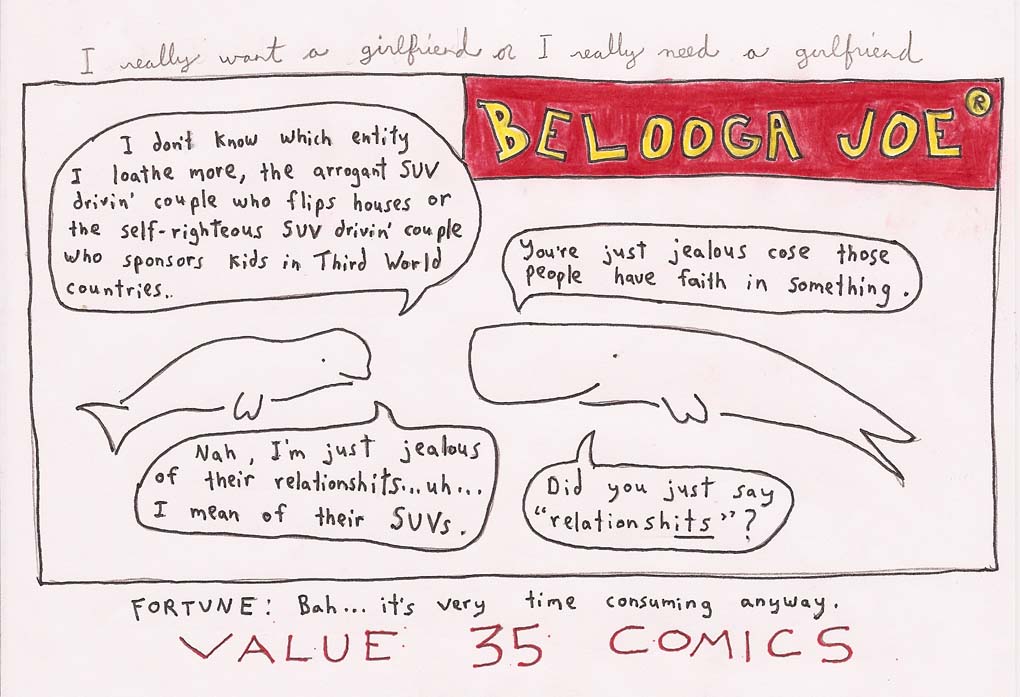 I really want a girlfriend or I really need a girlfriend
BELOOGA JOE®
I don't know which entity
I loathe more, the arrogant SUV
drivin' couple who flips houses or
the self-righteous SUV drivin' couple
who sponsors kids in Third World
countries..
You're just jealous cose those
people have faith in something.
Nah, I'm just jealous
of their relationshits...uh...
I mean of their SUVs.
Did you just say
"relationshits"?
FORTUNE: Bah... it's very time consuming anyway.
VALUE 35 COMICS